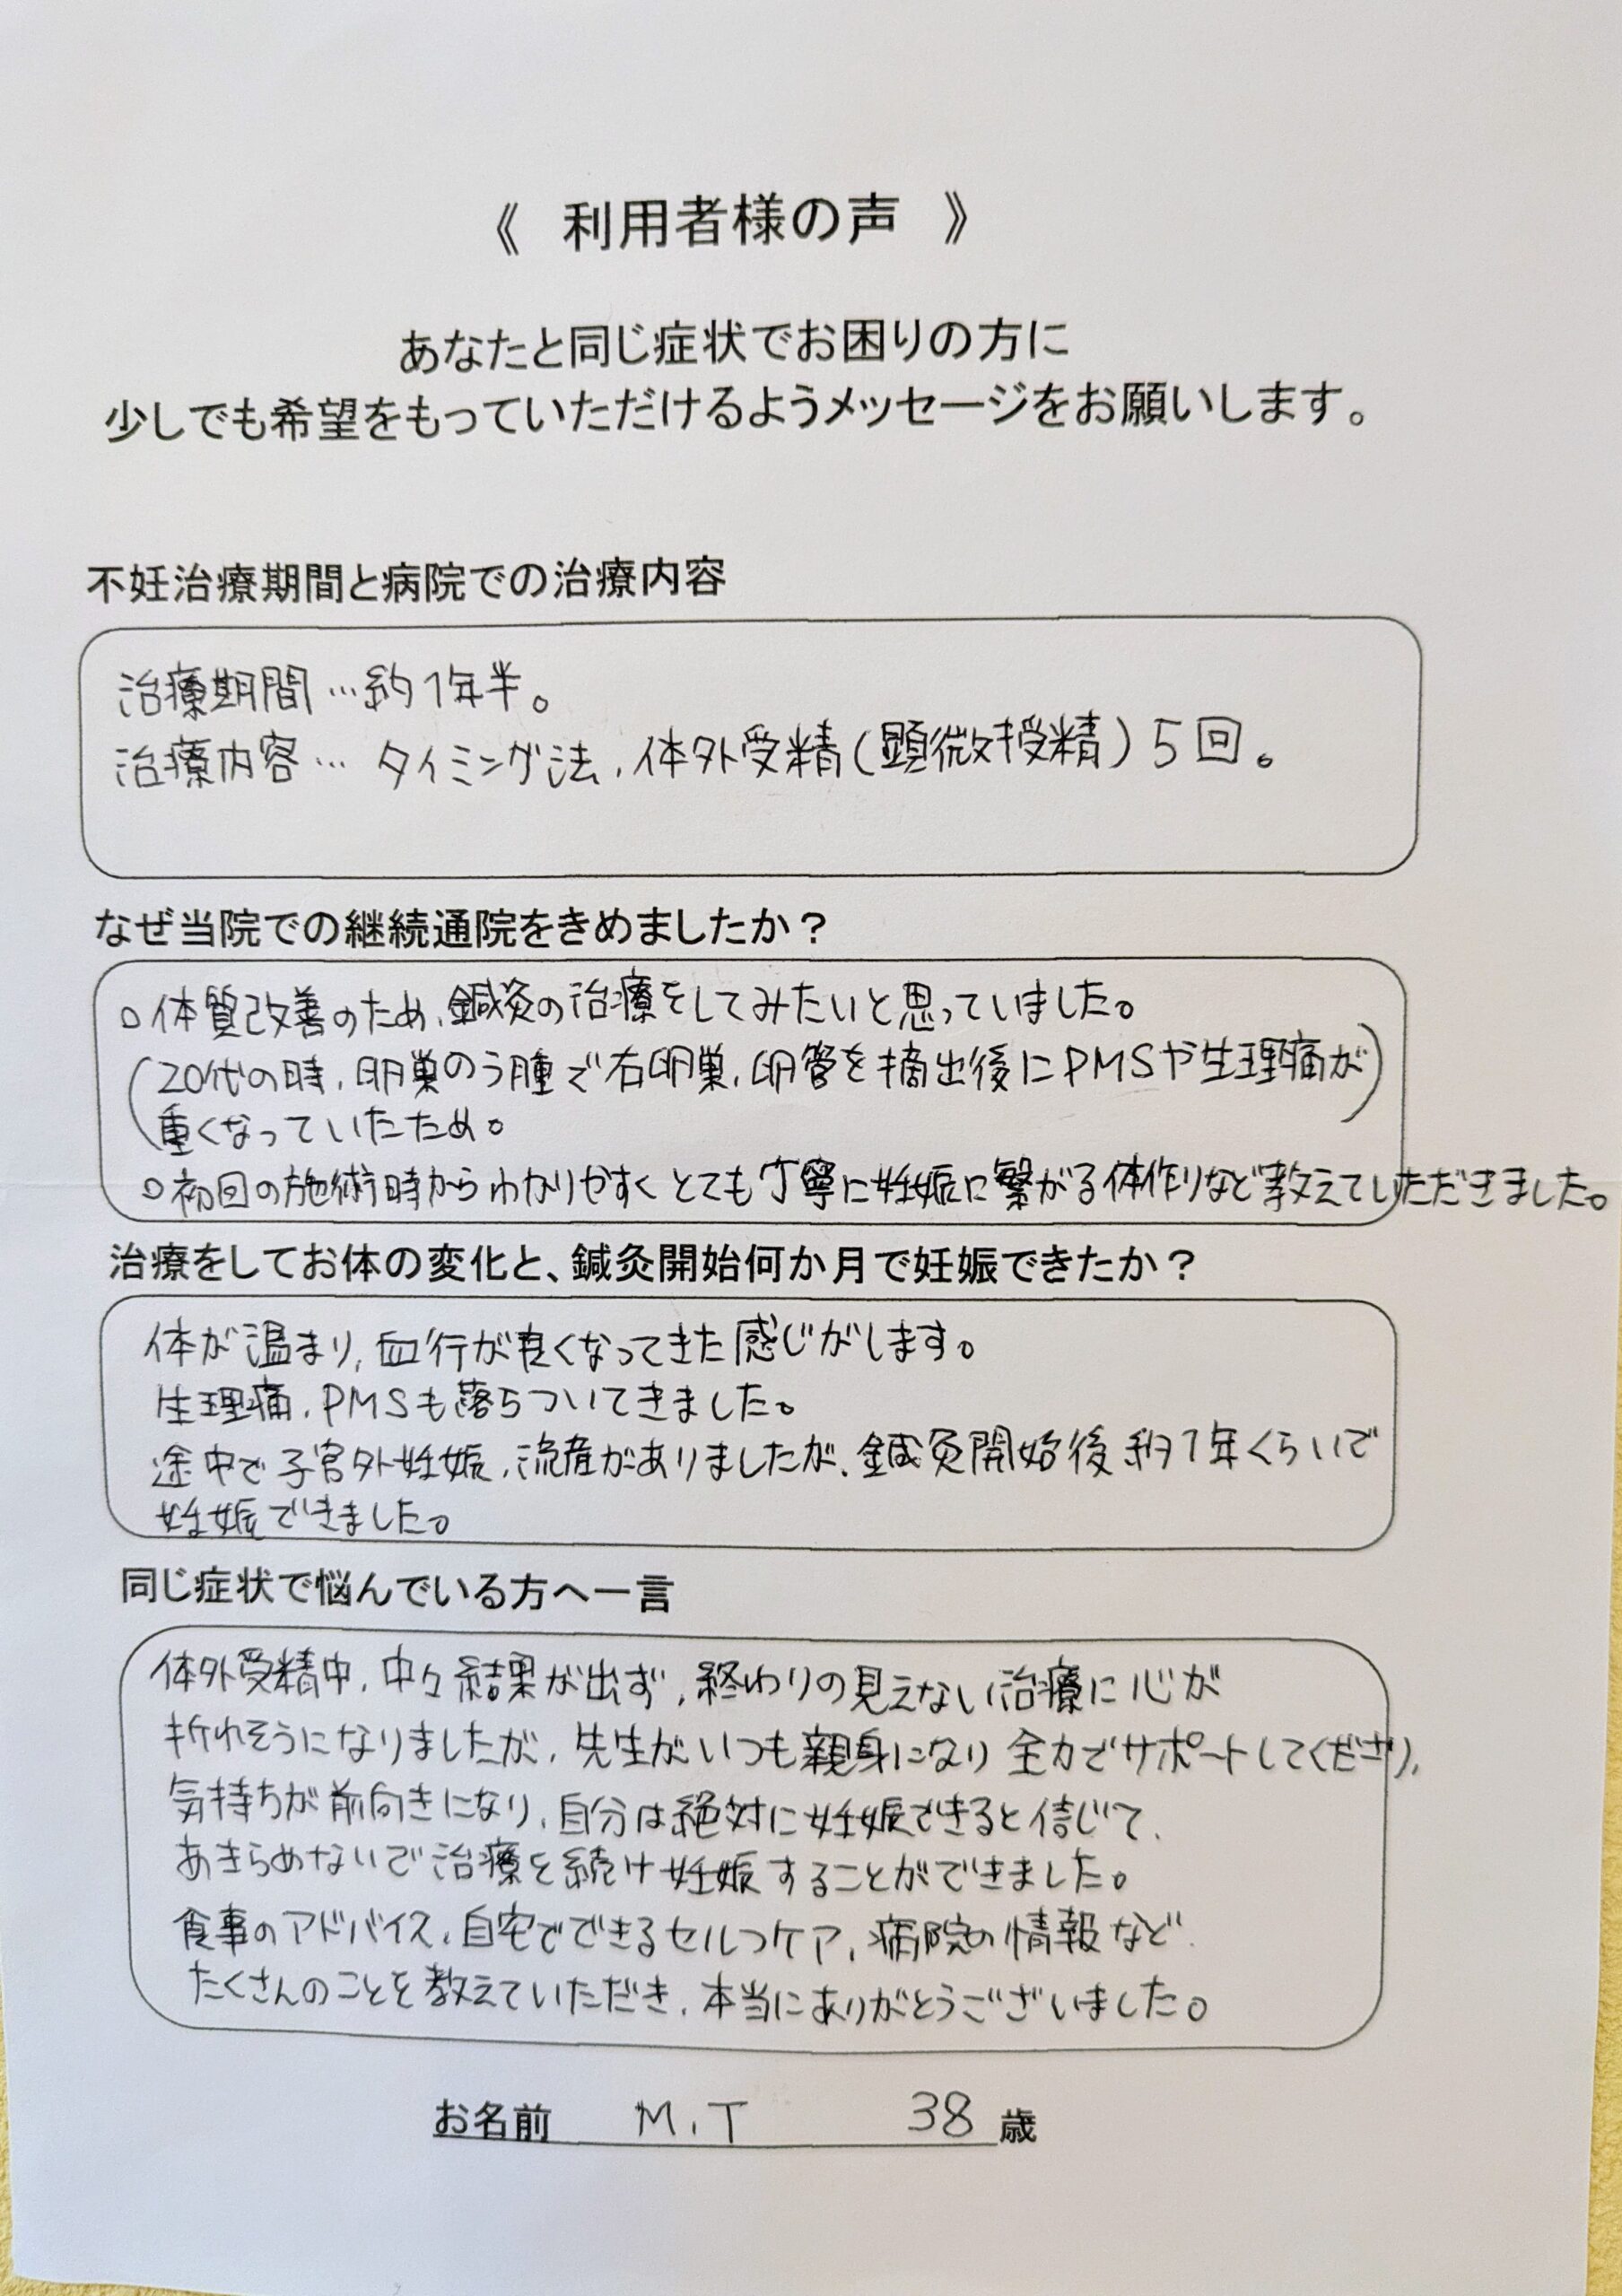 《 利用者様の声 》
あなたと同じ症状でお困りの方に
少しでも希望をもっていただけるようメッセージをお願いします。
不妊治療期間と病院での治療内容
治療期間…約1年半。
治療内容… タイミング法、体外受精(顕微授精)5回。
なぜ当院での継続通院をきめましたか？
○体質改善のため、鍼灸の治療をしてみたいと思っていました。
(20代の時、卵巣のう腫で右卵巣、卵管を摘出後にPMSや生理痛が
重くなっていたため。)
○初回の施術時からわかりやすくとても丁寧に妊娠に繋がる体作りなど教えていただきました。
治療をしてお体の変化と、鍼灸開始何か月で妊娠できたか？
体が温まり、血行が良くなってきた感じがします。
生理痛、PMSも落ちついてきました。
途中で子宮外妊娠、流産がありましたが、鍼灸開始後約1年くらいで
妊娠できました。
同じ症状で悩んでいる方へ一言
体外受精中、中々結果が出ず、終わりの見えない治療に心が
折れそうになりましたが、先生がいつも親身になり全力でサポートしてくださり、
気持ちが前向きになり、自分は絶対に妊娠できると信じて、
あきらめないで治療を続け妊娠することができました。
食事のアドバイス、自宅でできるセルフケア、病院の情報など
たくさんのことを教えていただき、本当にありがとうございました。
お名前 M.T 38歳